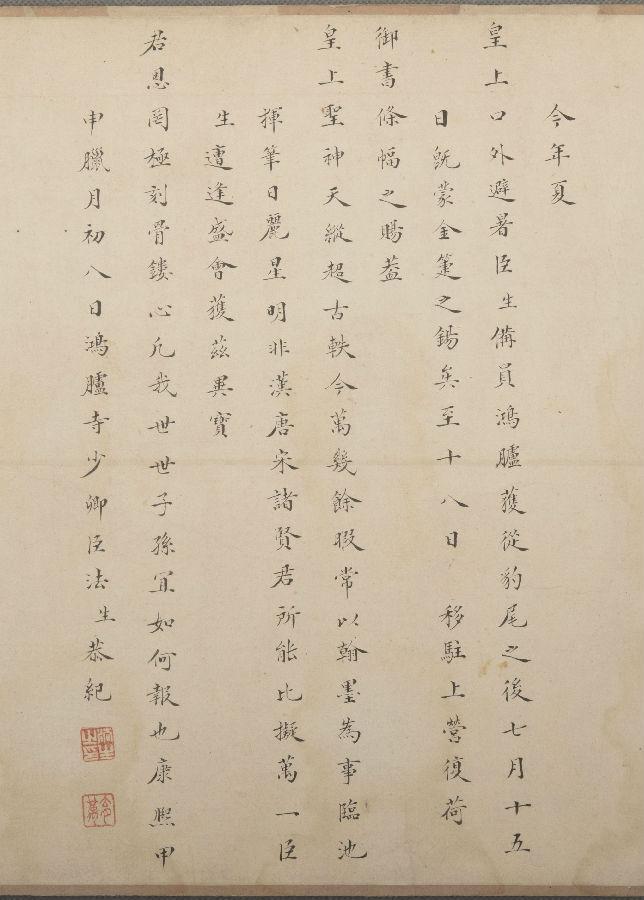 今年夏
皇上口外避暑臣生備員鴻臚獲從豹尾之後七月十五
日既蒙金箑之錫矣至十八日移駐上營復荷
御書條幅之賜蓋
皇上聖神天縱超古軼今萬幾餘暇常以翰墨為事臨池
揮筆日麗星明非漢唐宋諸賢君所能比擬萬一臣
生遭逢盛會獲茲異寶
君恩罔極刻骨鏤心凡我世世子孫宜如何報也康熙甲
申臘月初八日鴻臚寺少卿臣法生恭紀